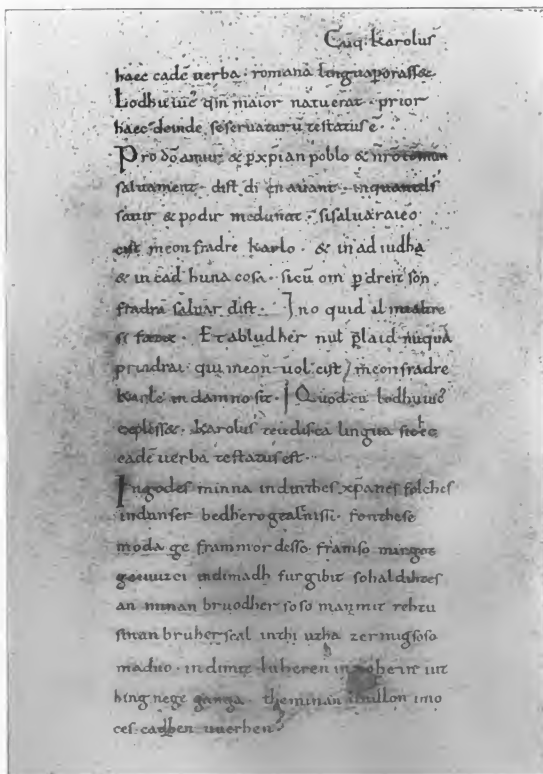 Cūq; karolus
haec eadē uerba · romana lingua perorasset
Lodhuuic' qm̄ maior natu erat · prior
haec deinde se seruaturū testatus ē
Pro dō amur & p xp̄ian poblo & nr̄o cōmun
saluament · dist di en auant · inquantds
sauir & podir medunat · si saluaraieo
cist meon fradre karlo · & in ad iudha
& in cad huna cosa · sicū om p dreit son
fradra saluar dist · Ino quid il mi altre
si faz& · Et abludher nul plaid nūquā
prindrai qui meon uol cist / meon fradre
karle in damno sit · Quod cū lodhuuic'
explesset · karolus teudisca lingua sic ec
eadē uerba testatus est ·
Ingodes minna indinthes xp̄anes folches
indunser bedhero gealtnissi · fonthese
moda ge frammordesso · framso mirgot
geuuizci indimadh furgibit sohaldihtes
an minan bruodher soso manmit rehtu
sinan bruher scal inthi utha zermigsoso
maduo · indimit luheren in nohein iut
hing nege ganga · theminan uuillon imo
ces cadhen uuerhen